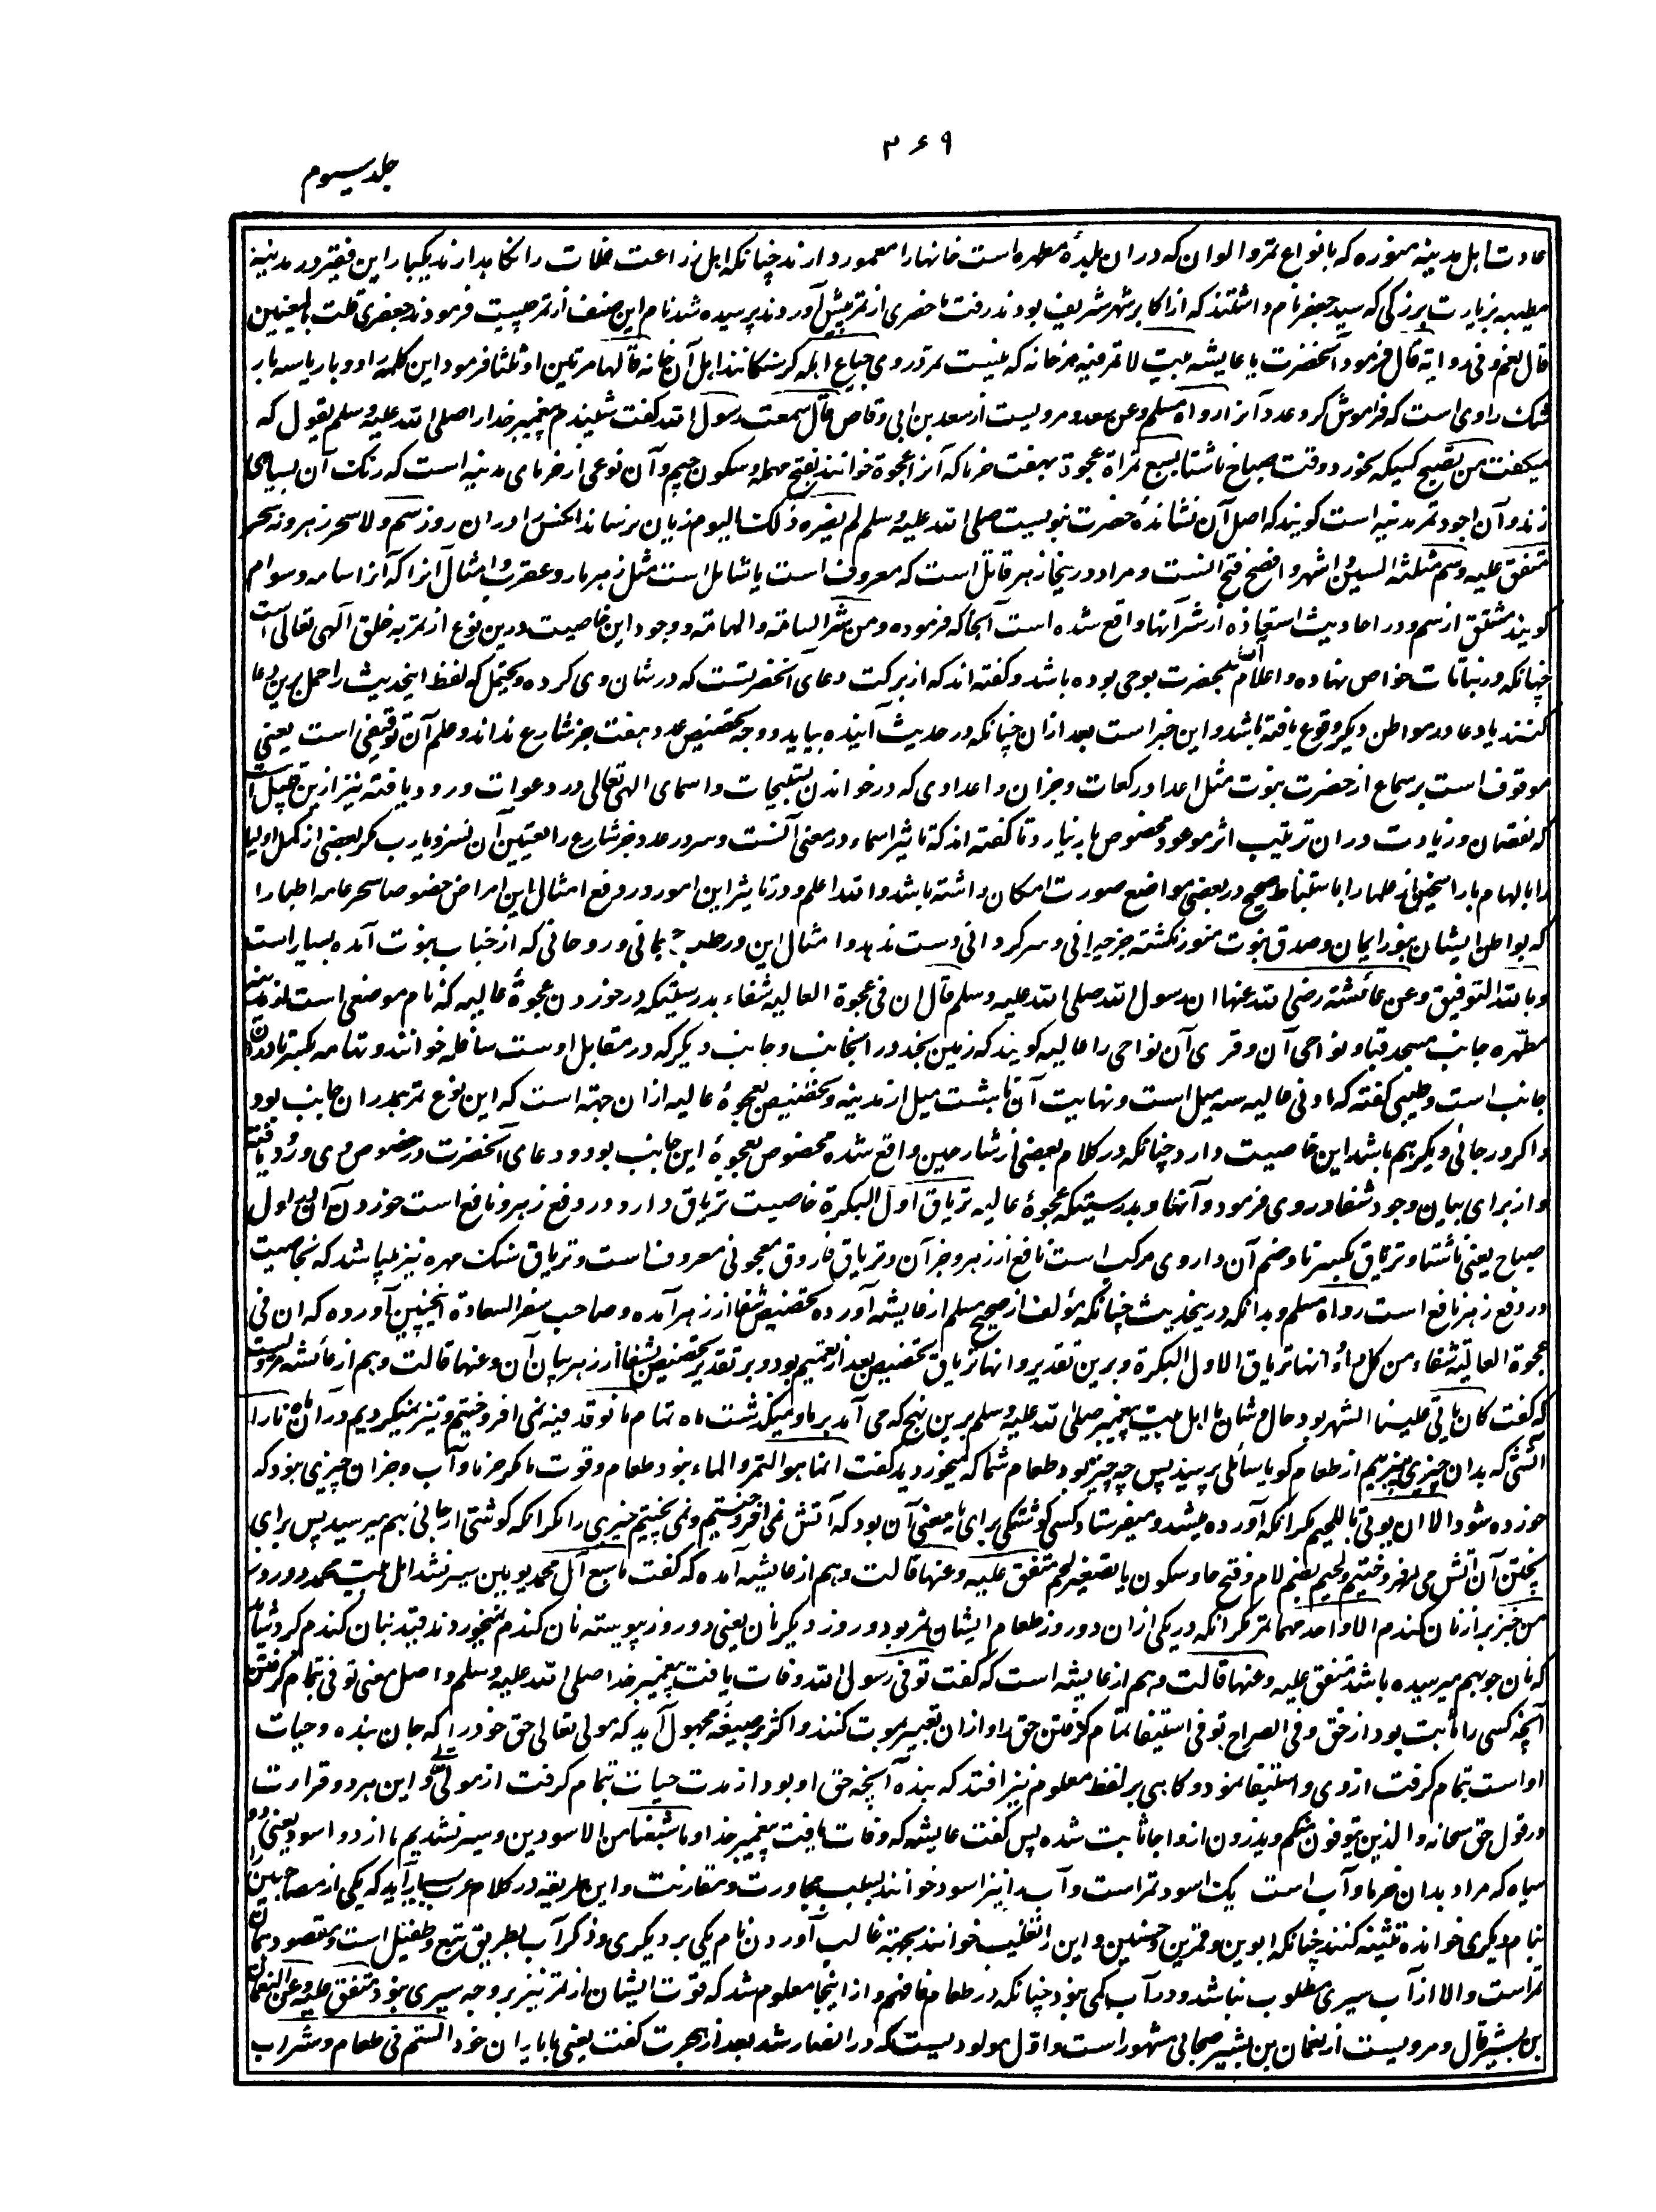 ۳۶۹
جلد سیوم
عادت اهل مدینه منوره که بانواع تمر و الوان که دران بلدهٔ مطهره است خانها را معمور دارند چنانکه اهل زراعت غلات را نگاهدارند یکبار این فقیر در مدینهٔ
مطیبه بزیارت بزرگی که سید جعفر نام داشتند که از اکابر شهر شریف بودند رفت ما حضری از تمر پیش آوردند پرسیده شد نام این صنف از تمر چیست فرمودند جعفری قلت بالیقین
قال نعم و فی روایة قال فرمود آنحضرت یا عایشه بیت لا تمر فیه هر خانه که نیست تمر در وی جیاع اهله گرسنگانند اهل آن خانه قالها مرتین او ثلثا فرمود این کلمه را دو بار یا سه بار
شک راوی است که فراموش کرد عدد آنرا رواه مسلم وعن سعد و مرویست از سعد بن ابی وقاص قال سمعت رسول الله گفت شنیدم پیغمبر خدا را صلی الله علیه وسلم یقول که
میگفت من تصبح کسیکه بخورد وقت صباح ناشتا بسبع تمراة عجوة بهفت خرما که آنرا عجوة خوانند بفتح مهمله وسکون جیم و آن نوعی از خرمای مدینه است که رنگ آن بسیاهی
زند و آن اجود تمر مدینه است گویند که اصل آن نشاندهٔ حضرت نبویست صلی الله علیه وسلم لم یضره ذلک الیوم زیان نرساند آنکس را دران روز سم ولا سحر زهر و نه سحر
متفق علیه وسم مثلثه السین و اشهر و افصح فتح انست و مراد درینجا زهر قاتل است که معروف است یا شامل است مثل زهر مار و عقرب و امثال آنرا که آنرا سامه و سوام
گویند مشتق از سم و در احادیث استعاذه از شر آنها واقع شده است آنجا که فرموده و من شر السامة والهامة و وجود این خاصیت درین نوع از تمر به خلق آلهی تعالی است
چنانکه در نباتات خواص نهاده و اعلام آن بحضرت بوحی بوده باشد و گفته اند که از برکت دعای آنحضرتست که در شان وی کرده و یحتمل که لفظ اینحدیث را حمل برین دعا
کنند یا دعا در مواطن دیگر وقوع یافته باشد و این خبر است بعد ازان چنانکه در حدیث آینده بیاید و وجه تخصیص عدد هفت جز شارع نداند و علم آن توقیفی است یعنی
موقوف است بر سماع از حضرت نبوت مثل اعداد رکعات و جزان و اعدادی که در خواندن تسبیحات و اسمای الهی تعالی در دعوات ورود یافته نیز ازین قبیل است
که نقصان و زیادت دران ترتیب اثر موعود مخصوص بار نیارد تا گفته اند که تاثیر اسماء در معنی آنست و سر در عدد و جز شارع را تعیین آن نسزد یارب مگر بعضی از کمل اولیا
را بالهام یا راسخین از علما را باستنباط صحیح در بعضی مواضع صورت امکان داشته باشد والله اعلم و در تاثیر این امور در رفع امثال این امراض خصوصا سحر عامه اطبا را
که بواطن ایشان بنور ایمان و صدق نبوت منور نگشته جز حیرانی و سرگردانی دست ندهد و امثال این در طب جسمانی و روحانی که از جناب نبوت آمده بسیار است
و بالله التوفیق وعن عائشة رضی الله عنها ان رسول الله صلی الله علیه وسلم قال ان فی عجوة العالیه شفاء بدرستیکه در خوردن عجوهٔ عالیه که نام موضعی است از مدینه
مطهره جانب مسجد قبا و نواحی آن و قری آن نواحی را عالیه گویند که زمین نجد در انجانب و جانب دیگر که در مقابل اوست سافله خوانند و تهامه بکسر تا دران
جانب است و طیبی گفته که ادنی عالیه سه میل است و نهایت آن تا هشت میل از مدینه و تخصیص بعجوهٔ عالیه ازان جهته است که این نوع تمر بهتر دران جانب بود
و اگر در جائی دیگر هم باشد این خاصیت دارد چنانکه در کلام بعضی از شارحین واقع شده مخصوص بعجوهٔ این جانب بود و دعای آنحضرت در خصوص وی ورود یافته
و از برای بیان وجود شفا در وی فرمود و آنها و بدرستیکه عجوهٔ عالیه تریاق اول البکرة خاصیت تریاق دارد در رفع زهر و نافع است خوردن آن در اول
صباح یعنی ناشتا و تریاق بکسر تا و ضم آن داروی مرکب است نافع از زهر و جز آن و تریاق فاروق معجونی معروف است و تریاق سنگ مهره نیز میباشد که بخاصیت
در دفع زهر نافع است رواه مسلم و بدانکه درینحدیث چنانکه مؤلف از صحیح مسلم از عایشه آورده تخصیص شفا از زهر آمده و صاحب سفر السعادة اینچنین آورده که ان فی
عجوة العالیة شفاء من کل داء و انها تریاق الاول البکرة و برین تقدیر و انها تریاق تخصیص بعد از تعمیم بود و بر تقدیر تخصیص شفا از زهر بیان آن وعنها قالت و هم از عائشه مرویست
که گفت کان یاتی علینا الشهر بود حال و شان ما اهل بیت پیغمبر صلی الله علیه وسلم برین نهج که می آمد بر ما و میگذشت ماه تمام ما نوقد فیه نمی افروختیم و تیز نمیکردیم در آن ماه نارا
آتشی که بدان چیزی بپزیم از طعام گویا سائلی پرسید پس چه چیز بود طعام شما که میخوردید گفت انما هو التمر والماء نبود طعام و قوت ما مگر خرما و آب و جزان چیزی نبود که
خورده شود الا ان یوتی باللحیم مگر آنکه آورده میشد و میفرستاد کسی گوشتکی برای ما معنی آن بود که آتش نمی افروختیم و نمی پختیم چیزی را مگر آنکه گوشتی از جائی بهم میرسید پس برای
پختن آن آتش می افروختیم ولحیم بضم لام و فتح حا و سکون یا تصغیر لحم متفق علیه وعنها قالت و هم از عایشه آمده که گفت ما شبع آل محمد یومین سیر نشد اهل بیت محمد دو روز
من خبز بر از نان گندم الا و احدهما تمر مگر آنکه در یکی ازان دو روز طعام ایشان تمر بود و روز دیگر نان یعنی دو روز پیوسته نان گندم نمیخوردند قید بنان گندم کرد شاید
که نان جو بهم میرسیده باشد متفق علیه وعنها قالت و هم از عایشه است که گفت توفی رسول الله وفات یافت پیغمبر خدا صلی الله علیه وسلم و اصل معنی توفی بتمام گرفتن
آنچه کسی را ثابت بود از حق و فی الصراح توفی استیفا تمام گرفتن حق را و ازان تعبیر بموت کنند و اکثر بصیغهٔ مجهول آید که مولی تعالی حق خود را که جان بنده و حیات
او است بتمام گرفت از وی و استیفا نمود و گاهی بر لفظ معلوم نیز افتد که بنده آنچه حق او بود از مدت حیات بتمام گرفت از مولی تعالی و این هر دو قراءت
در قول حق سبحانه والذین یتوفون منکم ویذرون ازواجا ثابت شده پس گفت عایشه که وفات یافت پیغمبر خدا و ما شبعنا من الاسودین و سیر نشدیم ما از دو اسود یعنی دو
سیاه که مراد بدان خرما و آب است یک اسود تمر است و آب را نیز اسود خوانند بسبب مجاورت و مقارنت و این طریقه در کلام عرب بسیار آید که یکی از مصاحبین را
بنام دیگری خوانده تثنیه کنند چنانکه ابوین و قمرین و حسنین و این را تغلیب خوانند بجهته غالب آوردن نام یکی بر دیگری و ذکر آب بطریق تبع و طفیل است و مقصود بیان
تمر است والا از آب سیری مطلوب نباشد و در آب کمی نبود چنانکه در طعام فافهم و از اینجا معلوم شد که قوت ایشان از تمر نیز بر وجه سیری نبود متفق علیه وعن النعمان
بن بشیر قال و مرویست از نعمان بن بشیر صحابی مشهور است و اول مولودیست که در انصار شد بعد از هجرت گفت یعنی با یاران خود الستم فی طعام وشراب